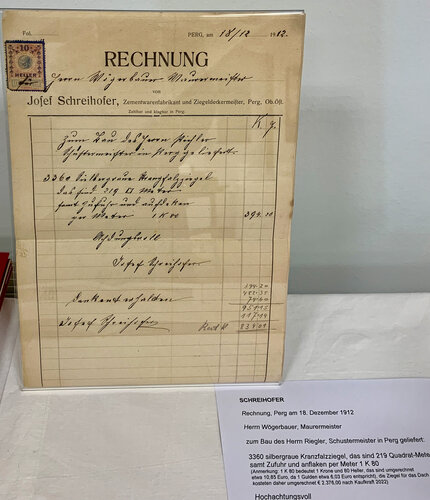 Fol.
PERG, am 18/12 1912.
10
HELLER
RECHNUNG
Herrn Wögerbauer Maurermeister
von
Josef Schreihofer, Zementwarenfabrikant und Ziegeldeckermeister, Perg, Ob.Öst.
Zahlbar und klagbar in Perg.
Zum Bau des Herrn
Schustermeister in Perg geliefert.
3360 Silbergraue Kranzfalzziegel
das sind 219 Meter
samt Zufuhr und
per Meter 1 K 80
394.20
Josef Schreihofer
dankend erhalten
394.20
Josef Schreihofer
SCHREIHOFER
Rechnung, Perg am 18. Dezember 1912
Herrn Wögerbauer, Maurermeister
zum Bau des Herrn Riegler, Schustermeister in Perg geliefert:
3360 silbergraue Kranzfalzziegel, das sind 219 Quadrat-Mete
samt Zufuhr und anflaken per Meter 1 K 80
(Anmerkung: 1 K 80 bedeutet 1 Krone und 80 Heller, das sind umgerechnet
etwa 10,85 Euro, da 1 Gulden etwa 6,03 Euro entspricht), die Ziegel für das Dach
kosteten daher umgerechnet € 2.376,00 nach Kaufkraft 2022).
Hochachtungsvoll